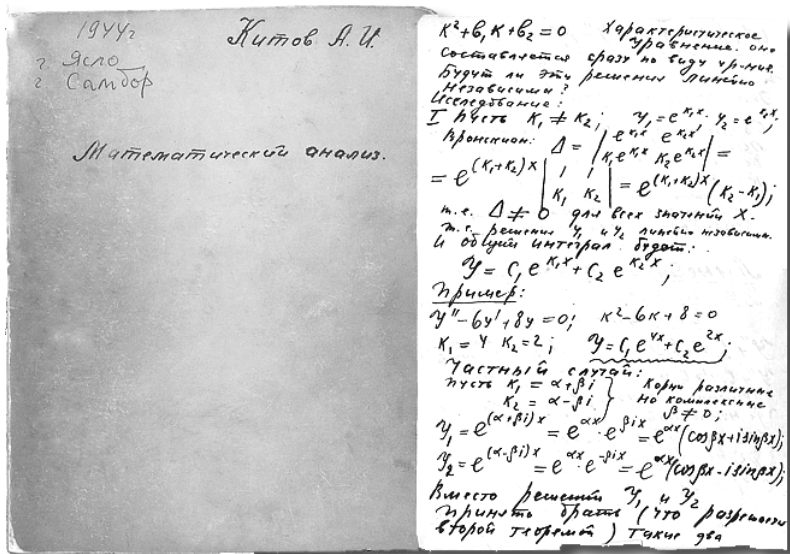 1944г
г. Ясло
г. Самбор
Китов А. И.
Математический анализ.
K²+b₁K+b₂=0 Характеристическое
уравнение. оно
составляется сразу по виду ур-ния.
Будут ли эти решения линейно
независимы?
Исследование:
I Пусть K₁ ≠ K₂; y₁=e^{K₁x}; y₂=e^{K₂x};
Вронскиан: Δ = | e^{K₁x} e^{K₂x} ; K₁e^{K₁x} K₂e^{K₂x} | =
= e^{(K₁+K₂)x} | 1 1 ; K₁ K₂ | = e^{(K₁+K₂)x}(K₂-K₁);
т.е. Δ ≠ 0 для всех значений X.
т.е. решения y₁ и y₂ линейно независимы.
И общий интеграл будет:
y = C₁e^{K₁x} + C₂e^{K₂x};
Пример:
y''-6y'+8y=0; K²-6K+8=0
K₁=4 K₂=2; y=C₁e^{4x}+C₂e^{2x};
Частный случай:
Пусть K₁ = α+βi } Корни различные
K₂ = α-βi } но комплексные
β≠0;
y₁=e^{(α+βi)x} = e^{αx}·e^{βix} = e^{αx}(cosβx+isinβx);
y₂=e^{(α-βi)x} = e^{αx}·e^{-βix} = e^{αx}(cosβx-isinβx);
Вместо решений y₁ и y₂
принято брать (что разрешается
второй теоремой) такие два